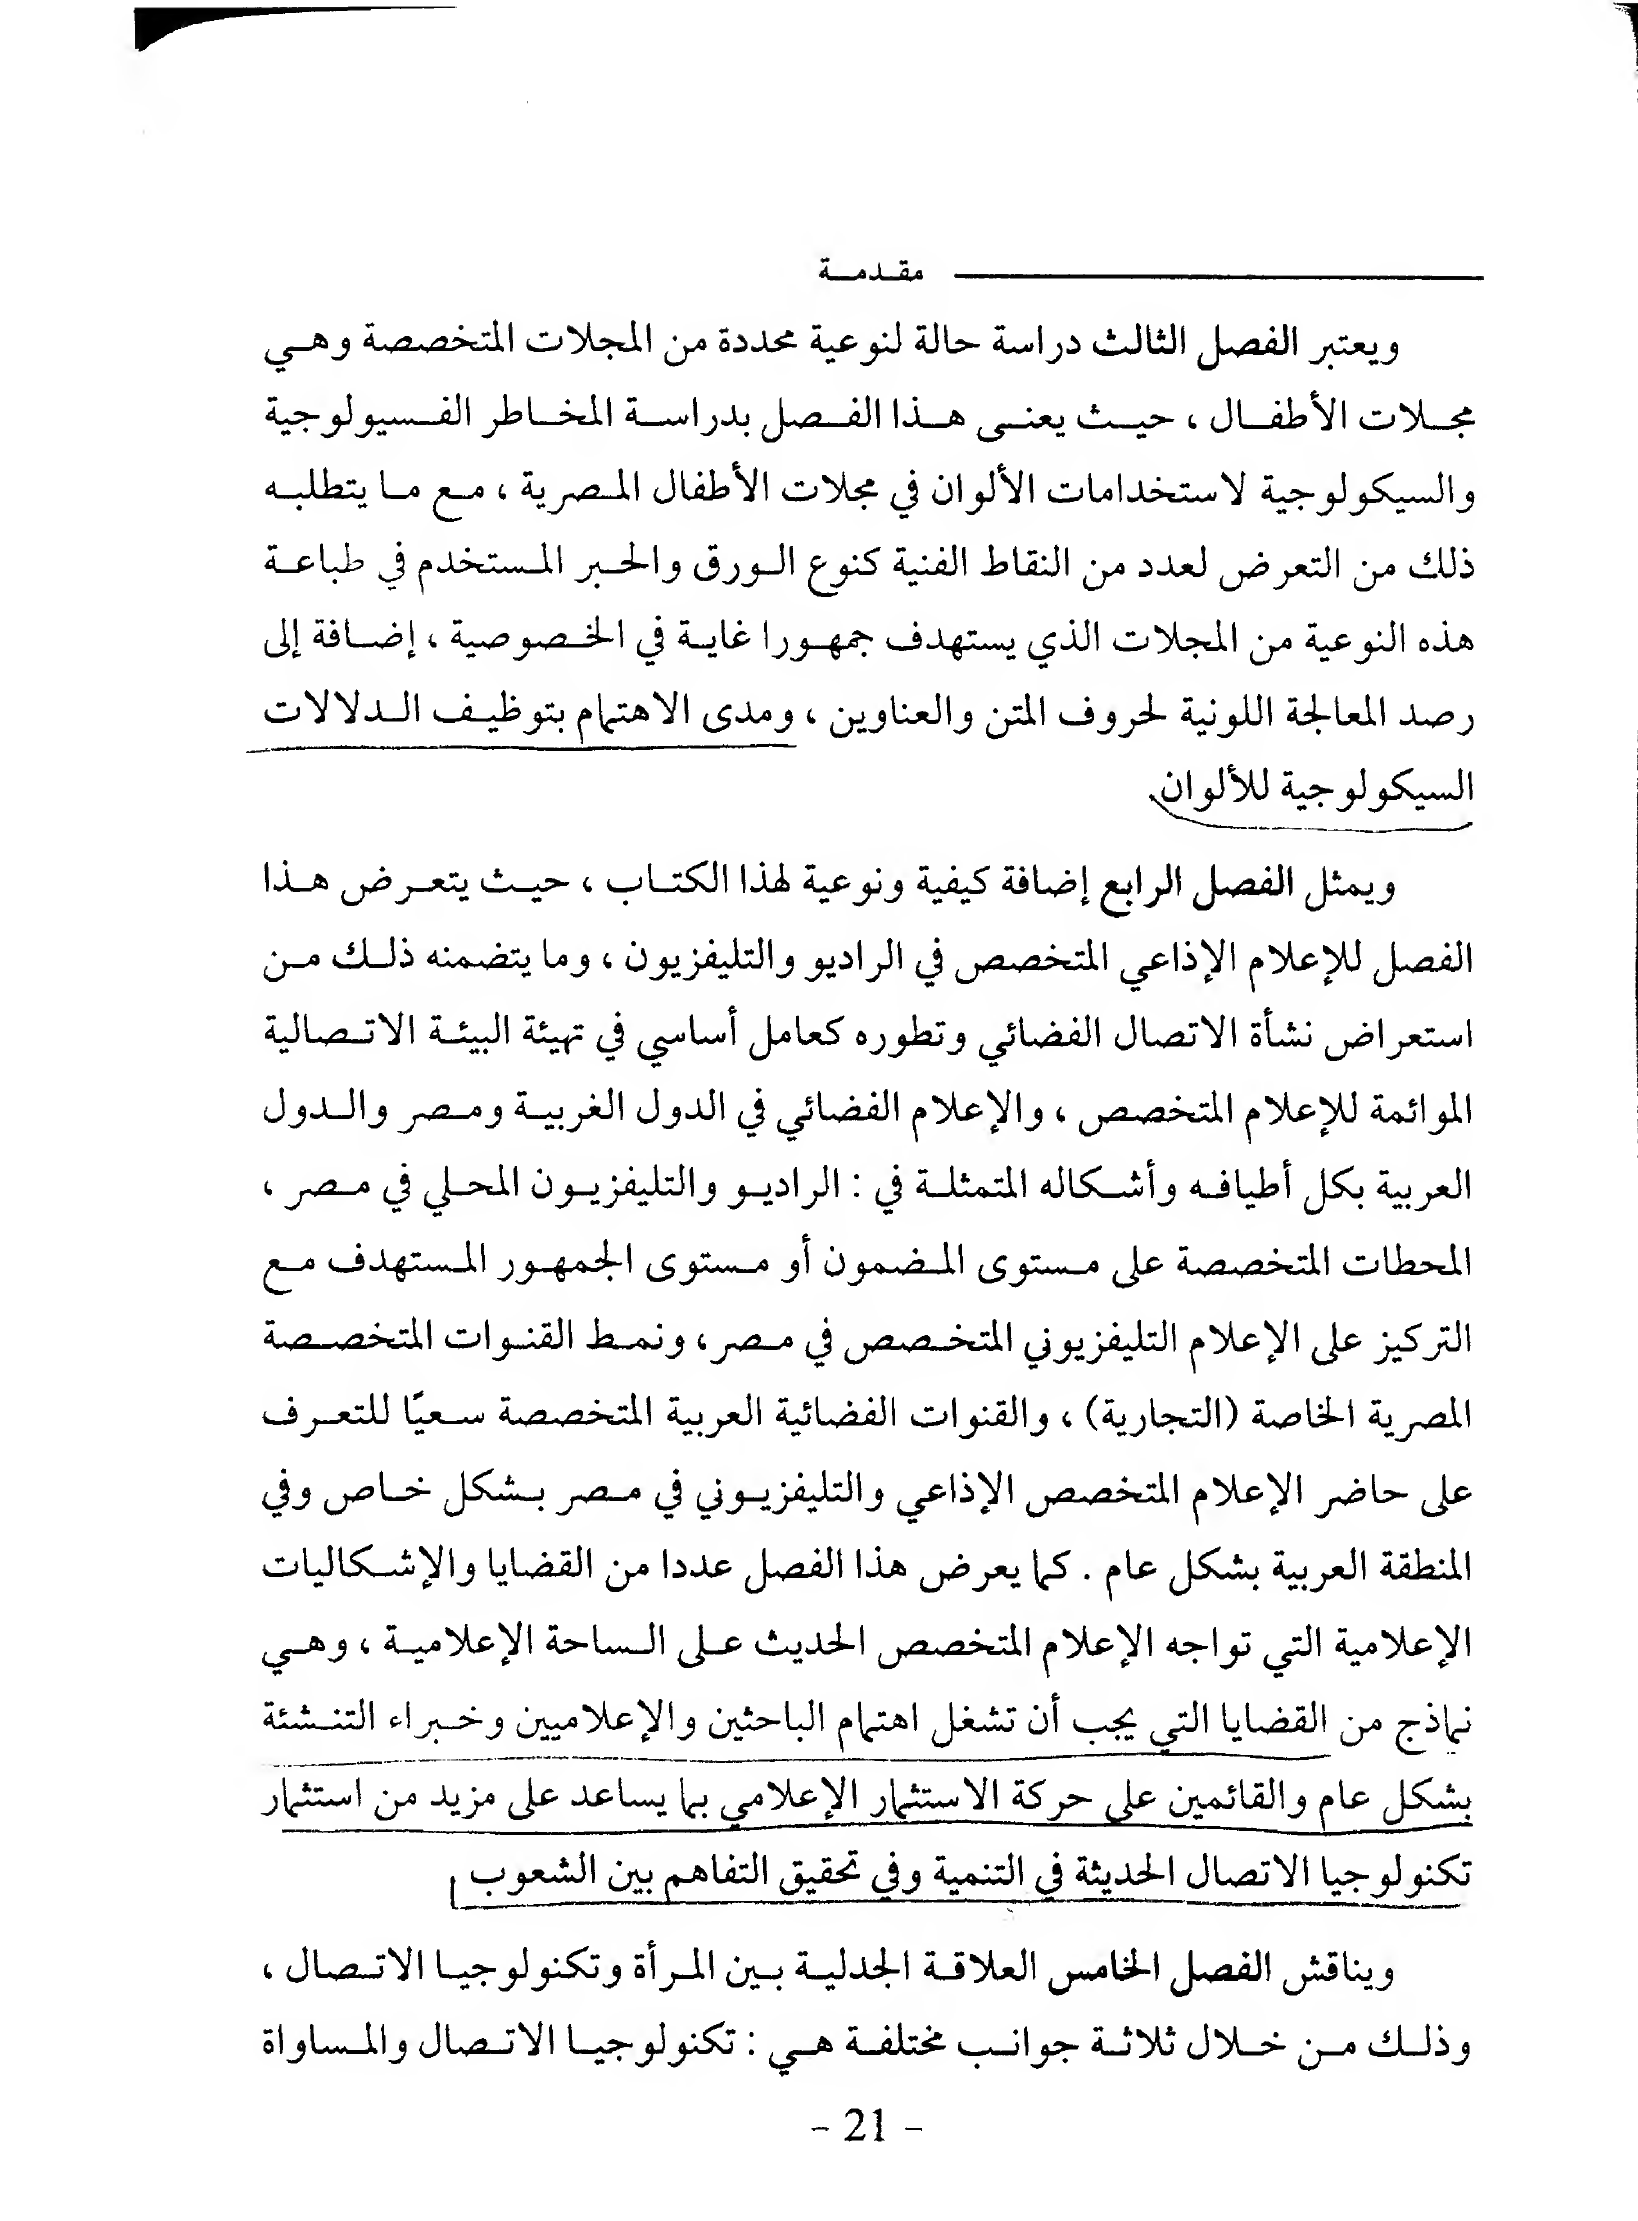 مقدمة
ويعتبر الفصل الثالث دراسة حالة لنوعية محددة من المجلات المتخصصة وهي
مجلات الأطفال ، حيث يعنى هذا الفصل بدراسة المخاطر الفسيولوجية
والسيكولوجية لاستخدامات الألوان في مجلات الأطفال المصرية ، مع ما يتطلبه
ذلك من التعرض لعدد من النقاط الفنية كنوع الورق والحبر المستخدم في طباعة
هذه النوعية من المجلات الذي يستهدف جمهورا غاية في الخصوصية ، إضافة إلى
رصد المعالجة اللونية لحروف المتن والعناوين ، ومدى الاهتمام بتوظيف الدلالات
السيكولوجية للألوان.
ويمثل الفصل الرابع إضافة كيفية ونوعية لهذا الكتاب ، حيث يتعرض هذا
الفصل للإعلام الإذاعي المتخصص في الراديو والتليفزيون ، وما يتضمنه ذلك من
استعراض نشأة الاتصال الفضائي وتطوره كعامل أساسي في تهيئة البيئة الاتصالية
الموائمة للإعلام المتخصص ، والإعلام الفضائي في الدول الغربية ومصر والدول
العربية بكل أطيافه وأشكاله المتمثلة في : الراديو والتليفزيون المحلي في مصر ،
المحطات المتخصصة على مستوى المضمون أو مستوى الجمهور المستهدف مع
التركيز على الإعلام التليفزيوني المتخصص في مصر، ونمط القنوات المتخصصة
المصرية الخاصة (التجارية) ، والقنوات الفضائية العربية المتخصصة سعيًا للتعرف
على حاضر الإعلام المتخصص الإذاعي والتليفزيوني في مصر بشكل خاص وفي
المنطقة العربية بشكل عام . كما يعرض هذا الفصل عددا من القضايا والإشكاليات
الإعلامية التي تواجه الإعلام المتخصص الحديث على الساحة الإعلامية ، وهي
نماذج من القضايا التي يجب أن تشغل اهتمام الباحثين والإعلاميين وخبراء التنشئة
بشكل عام والقائمين على حركة الاستثمار الإعلامي بما يساعد على مزيد من استثمار
تكنولوجيا الاتصال الحديثة في التنمية وفي تحقيق التفاهم بين الشعوب
ويناقش الفصل الخامس العلاقة الجدلية بين المرأة وتكنولوجيا الاتصال ،
وذلك من خلال ثلاثة جوانب مختلفة هي : تكنولوجيا الاتصال والمساواة
- 21 -